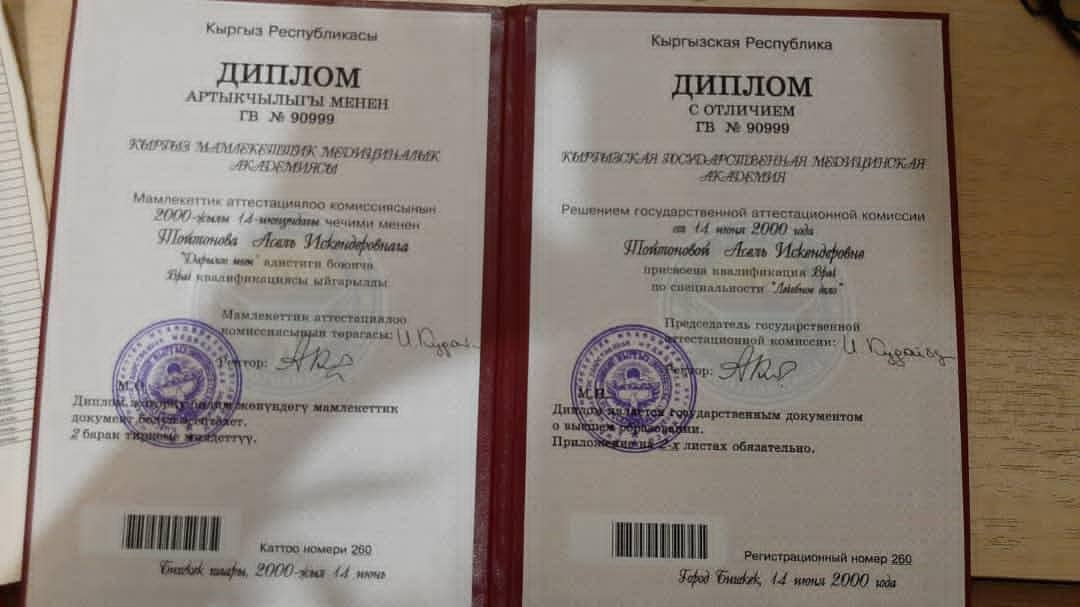 Кыргыз Республикасы
ДИПЛОМ
АРТЫКЧЫЛЫГЫ МЕНЕН
ГВ № 90999
КЫРГЫЗ МАМЛЕКЕТТИК МЕДИЦИНАЛЫК
АКАДЕМИЯСЫ
Мамлекеттик аттестациялоо комиссиясынын
2000-жылы 14-июнундагы чечими менен
Тойтонова Асель Искендеровнага
адистиги боюнча
Врач квалификациясы ыйгарылды
Мамлекеттик аттестациялоо
комиссиясынын төрагасы:
Ректор:
М.О.
Диплом жогорку билим жөнүндөгү мамлекеттик
документ болуп эсептелет.
2 барак тиркеме милдеттүү.
Каттоо номери 260
Бишкек шаары, 2000-жыл 14 июнь
Кыргызская Республика
ДИПЛОМ
С ОТЛИЧИЕМ
ГВ № 90999
КЫРГЫЗСКАЯ ГОСУДАРСТВЕННАЯ МЕДИЦИНСКАЯ
АКАДЕМИЯ
Решением государственной аттестационной комиссии
от 14 июня 2000 года
Тойтоновой Асель Искендеровне
присвоена квалификация Врач
по специальности "Лечебное дело"
Председатель государственной
аттестационной комиссии:
Ректор:
М.П.
Диплом является государственным документом
о высшем образовании.
Приложение на 2-х листах обязательно.
Регистрационный номер 260
Город Бишкек, 14 июня 2000 года